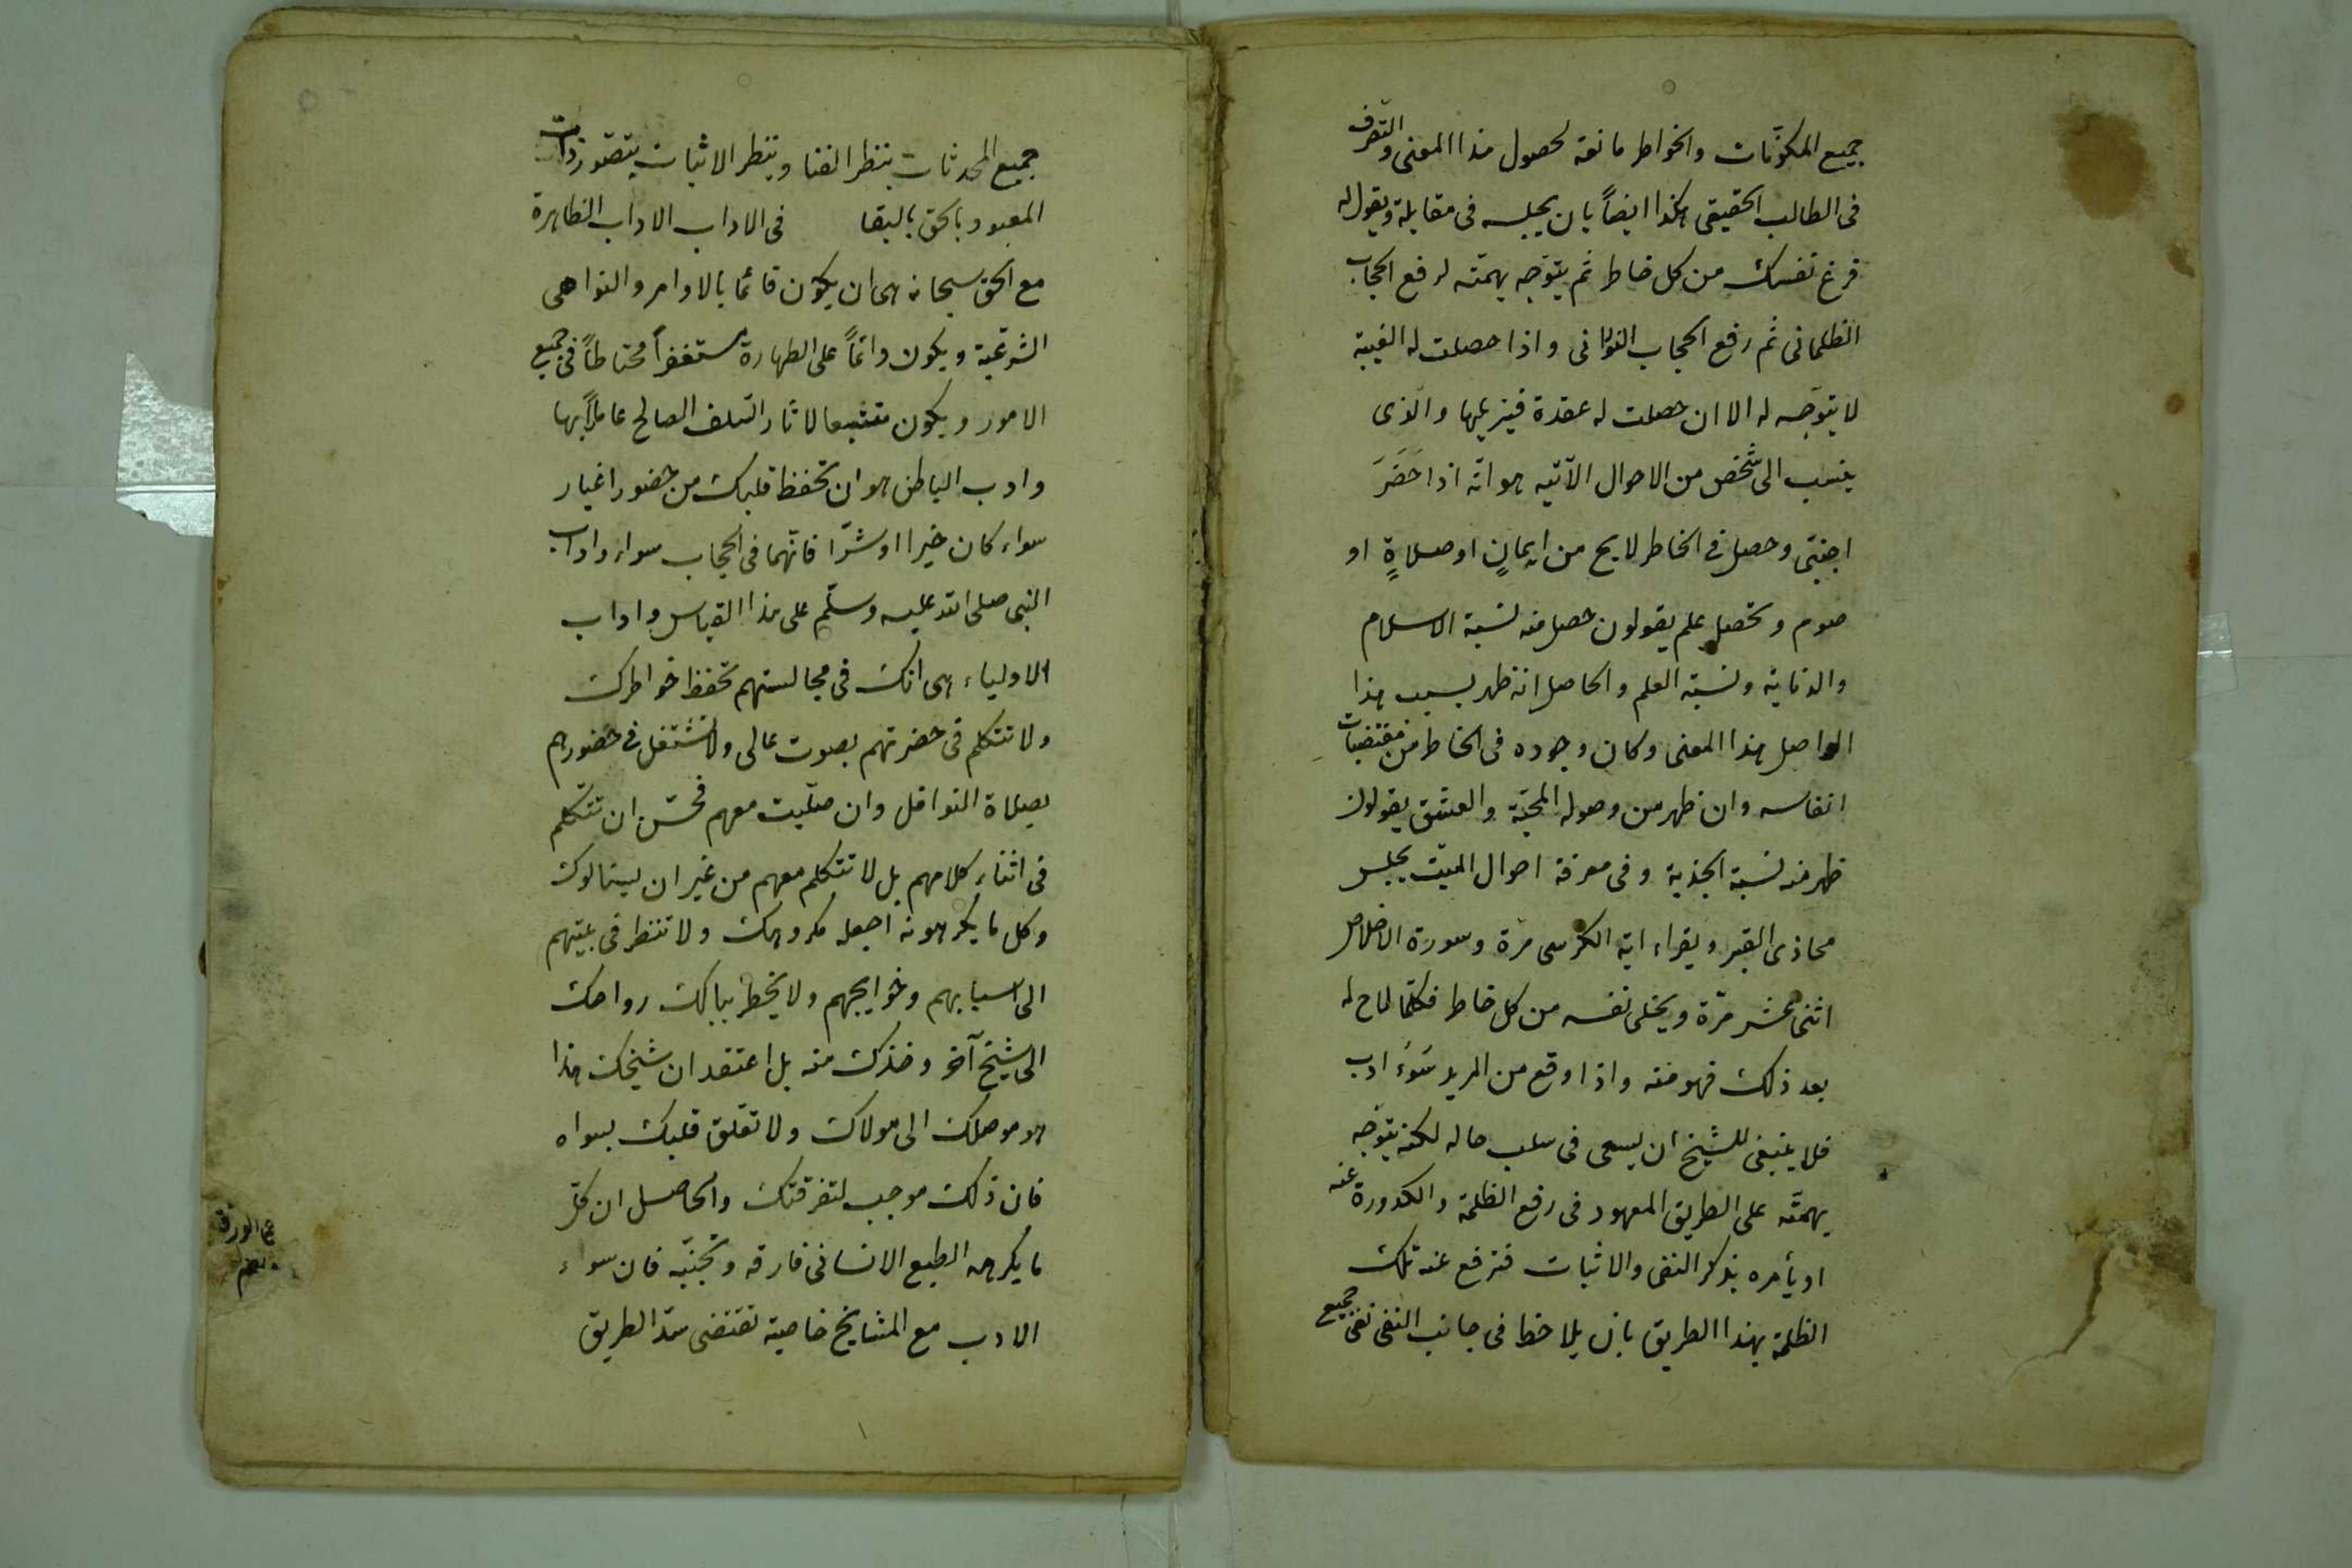 جميع المكوّنات والخواطر مانعة لحصول هذا المعنى والتصرف
فى الطالب الحقيقى هكذا ايضاً بان يجلسه فى مقابلة ويقول له
فرغ نفسك من كل خاطر ثم يتوجه بهمّته لرفع الحجاب
الظلمانى ثم رفع الحجاب النورانى واذا حصلت له الغيبة
لا يتوجّه له الا ان حصلت له عقدة فيزيلها والذى
ينسب الى شخص من الاحوال الآتيه هو انّه اذا حَضَرَ
اجنبى وحصل فى الخاطر لايح من ايمانٍ او صلاةٍ او
صوم وتحصيل علم يقولون حصل منه نسبة الاسلام
والديانة ونسبة العلم والحاصل انه ظهر بسبب هذا
الواصل هذا المعنى وكان وجوده فى الخاطر من مقتضيات
انفاسه وان ظهر من وصوله المحبّة والعشق يقولون
ظهر منه نسبة الجذبة وفى معرفة احوال الميّت يجلس
محاذى القبر ويقراء اية الكرسى مرة وسورة الاخلاص
اثنى عشر مرّة ويخلى نفسه من كل خاطر فكلّما لاح له
بعد ذلك فهو منه واذا وقع من المريد سُوءَ ادب
فلا ينبغى للشيخ ان يسعى فى سلب حاله لكنه يتوجّه
بهمّته على الطريق المعهود فى رفع الظلمة والكدورة عنه
او يأمره بذكر النفى والاثبات فترفع عنه تلك
الظلمة بهذا الطريق بان يلاحظ فى جانب النفى نفى جميع
جميع المحدثات بنظر الفنا وبنظر الاثبات يتصور ذات
المعبود بالحق بالبقا فى الاداب الاداب الظاهرة
مع الحق سبحانه هى ان يكون قائمًا بالاوامر والنواهى
الشرعية ويكون دائماً على الطهارة مستغفراً محتاطاً فى جميع
الامور ويكون متتبعا لاثار السلف الصالح عاملاً بها
وادب الباطن هو ان تحفظ قلبك من حضور اغيار
سواء كان خيرا او شرّا فانهما فى الحجاب سواء واداب
النبى صلى الله عليه وسلّم على هذا القياس واداب
الاولياء هى انك فى مجالستهم تحفظ خواطرك
ولا تتكلم فى حضرتهم بصوت عالى ولا تشتغل فى حضورهم
بصلاة النوافل وان صلّيت معهم فحسن ان تتكلم
فى اثناء كلامهم بل لا تتكلم معهم من غير ان يسالوك
وكل ما يكرهونه اجعله مكروهك ولا تنظر فى بيتهم
الى اسبابهم وحوايجهم ولا يخطر ببالك رواحك
الى شيخ آخر وخذك منه بل اعتقد ان شيخك هذا
هو موصلك الى مولاك ولا تعلّق قلبك بسواه
فان ذلك موجب لتفرقتك والحاصل ان كلّ
ما يكرهه الطبع الانسانى فارقه وتجنبّه فان سواء
الادب مع المشايخ خاصية تقتضى سدّ الطريق